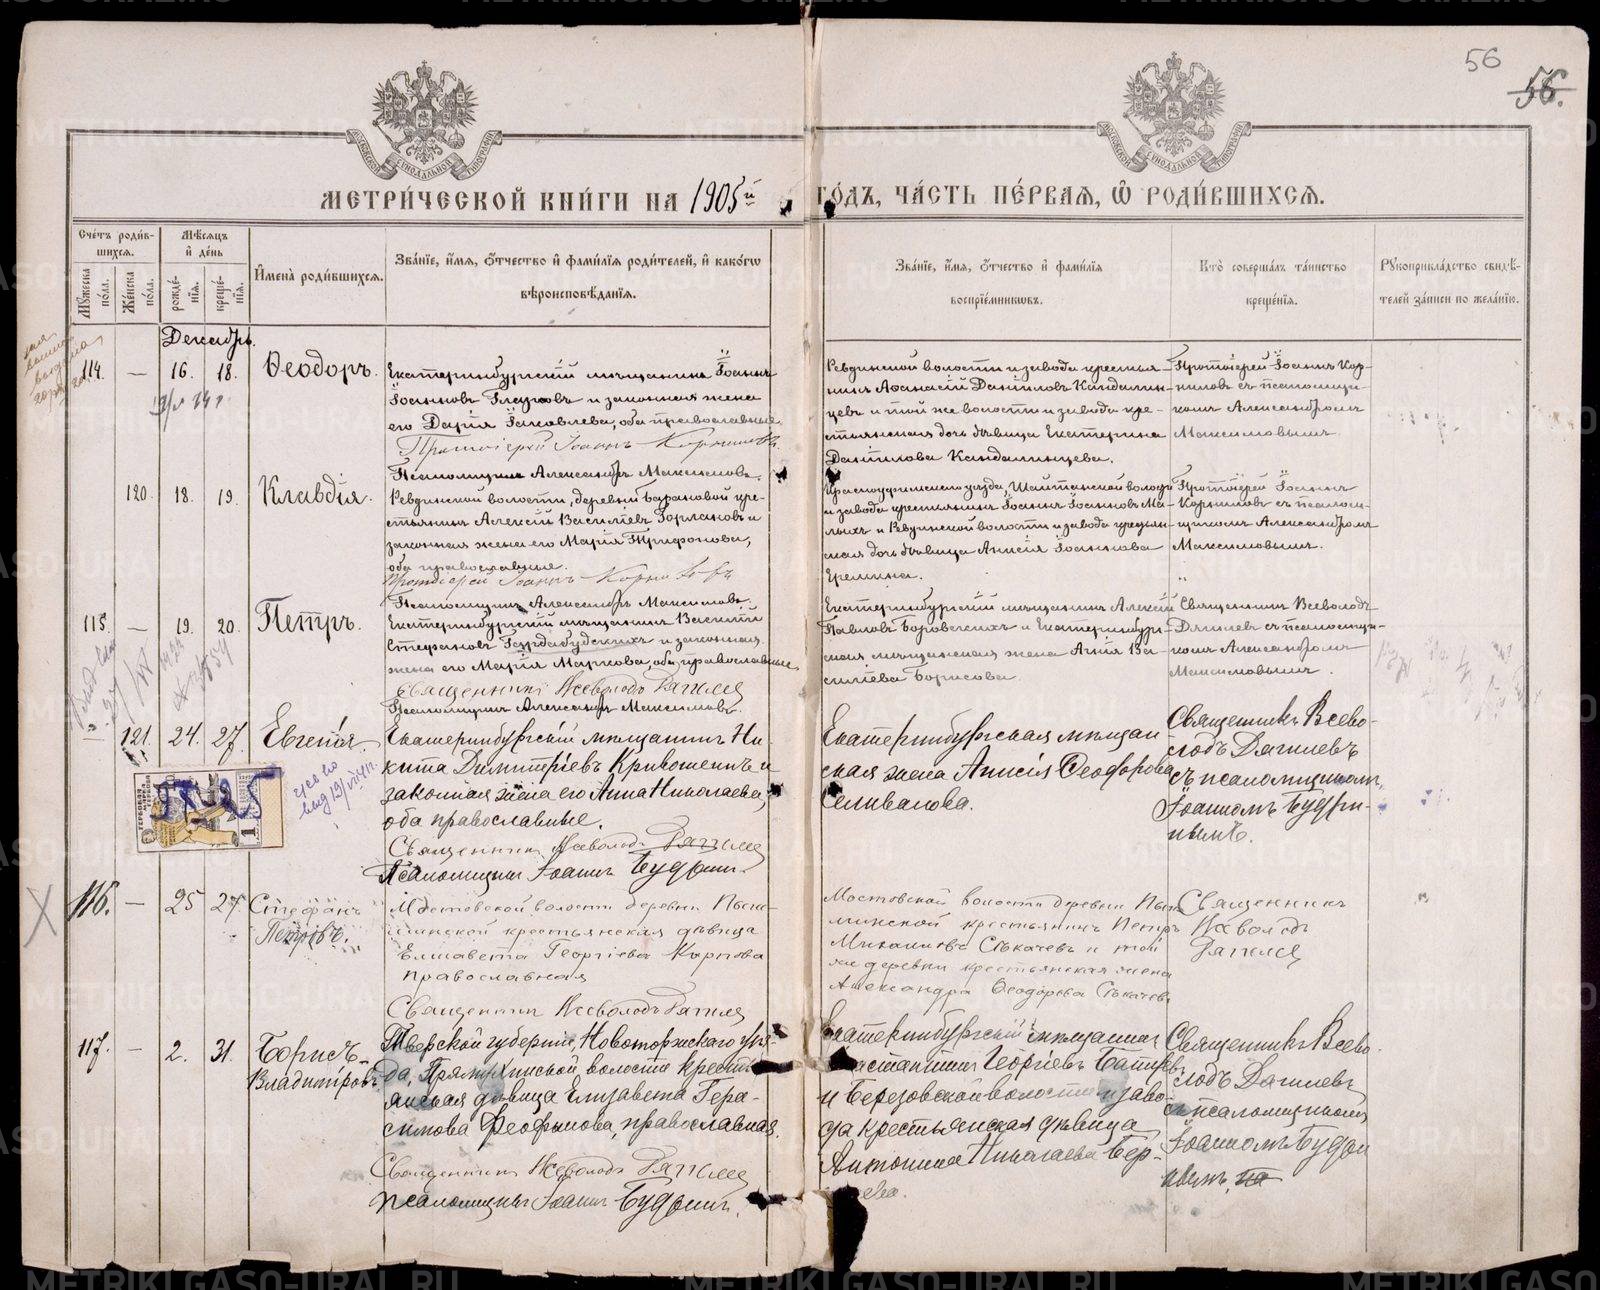 56
56.
МЕТРИ́ЧЕСКОЙ КНИ́ГИ НА 1905й ГО́ДЪ, ЧА́СТЬ ПЕ́РВАЯ, Ѡ РОДИ́ВШИХСЯ.
Сче́тъ роди́в-
шихся.
Мѣ́сяцъ
и де́нь
Мꙋ́жеска по́ла.
Же́нска по́ла.
рожде́-
нїя.
креще́-
нїя.
И҆мена̀ роди́вшихся.
Зва́нїе, и҆́мя, ѻ҆́тчество и҆ фами́лїя роди́телей, и҆ како́гѡ
вѣроисповѣ́данїя.
Зва́нїе, и҆́мя, ѻ҆́тчество и҆ фами́лїя
воспрїе́мникѡвъ.
Кто̀ соверша́лъ та́инство
креще́нїя.
Рꙋкоприкла́дство свидѣ́-
телей за́писи по жела́нїю.
Декабрь.
114. — 16. 18. Ѳеодоръ.
Екатеринбургскій мѣщанинъ Іоаннъ
Іоанновъ и законная жена
его Дарія Іаковлева, оба православные
Протоіерей Іоаннъ Корниловъ
Псаломщикъ Александръ Максимовъ.
Ревдинской волости и завода крестья-
нинъ Аѳанасій Даніиловъ Кандалин-
цевъ и той же волости и завода кре-
стьянская дочь дѣвица Екатерина
Даніилова Кандалинцева.
Протоіерей Іоаннъ Кор-
ниловъ съ псаломщи-
комъ Александромъ
Максимовымъ.
120. 18. 19. Клавдія.
Ревдинской волости, деревни Барановой кре-
стьянинъ Алексій Василіевъ Горлановъ и
законная жена его Марія Трифонова,
оба православные.
Протоіерей Іоаннъ Корниловъ
Псаломщикъ Александръ Максимовъ.
Красноуфимскаго уѣзда, Шайтанской волости
и завода крестьянинъ Іоаннъ Іоанновъ Ма-
лыхъ и Ревдинской волости и завода крестьян-
ская дочь дѣвица Анисія Іоаннова
Еремина.
Протоіерей Іоаннъ
Корниловъ съ псалом-
щикомъ Александромъ
Максимовымъ.
115. — 19. 20. Петръ.
Екатеринбургскій мѣщанинъ Василій
Стефановъ и законная
жена его Марія Маркова, оба православные
Священникъ Всеволодъ Дягилевъ
Псаломщикъ Александръ Максимовъ.
Екатеринбургскій мѣщанинъ Алексій
Павловъ Боровскихъ и Екатеринбург-
ская мѣщанская жена Анна Ва-
силіева Борисова.
Священникъ Всеволодъ
Дягилевъ съ псаломщи-
комъ Александромъ
Максимовымъ.
121. 24. 27. Евгенія.
Екатеринбургскій мѣщанинъ Ни-
кита Димитріевъ Кривошеинъ и
законная жена его Анна Николаева,
оба православные.
Священникъ Всеволодъ Дягилевъ
Псаломщикъ Іоаннъ Будринъ.
Екатеринбургская мѣщан
ская жена Анисія Ѳеодорова
Селиванова.
Священникъ Всево-
лодъ Дягилевъ
съ псаломщикомъ
Іоанномъ Будри-
нымъ.
116. — 25 27 Стефанъ
Петровъ.
Мостовской волости деревни Пыш-
минской крестьянская дѣвица
Елисавета Георгіева Карпова
православная
Священникъ Всеволодъ Дягилевъ
Мостовской волости деревни Пыш
минской крестьянинъ Петръ
Михаиловъ Сѣкачевъ и той
же деревни крестьянская жена
Александра Ѳеодорова Сѣкачева
Священникъ
Всеволодъ
Дягилевъ
117. — 2. 31. Борисъ
Владиміровъ
Тверской губерніи, Новоторжскаго уѣз-
да, Прямухинской волости крестья
янская дѣвица Елизавета Гера-
симова Феофанова, православная.
Священникъ Всеволодъ Дягилевъ
Псаломщикъ Іоаннъ Будринъ.
Екатеринбургскій мѣщанинъ
Константинъ Георгіевъ
и Березовской волости и заво-
да крестьянская дѣвица
Антонина Николаева
Священникъ Всево-
лодъ Дягилевъ
съ псаломщикомъ
Іоанномъ Будри
нымъ.
METRIKI.GASO-URAL.RU